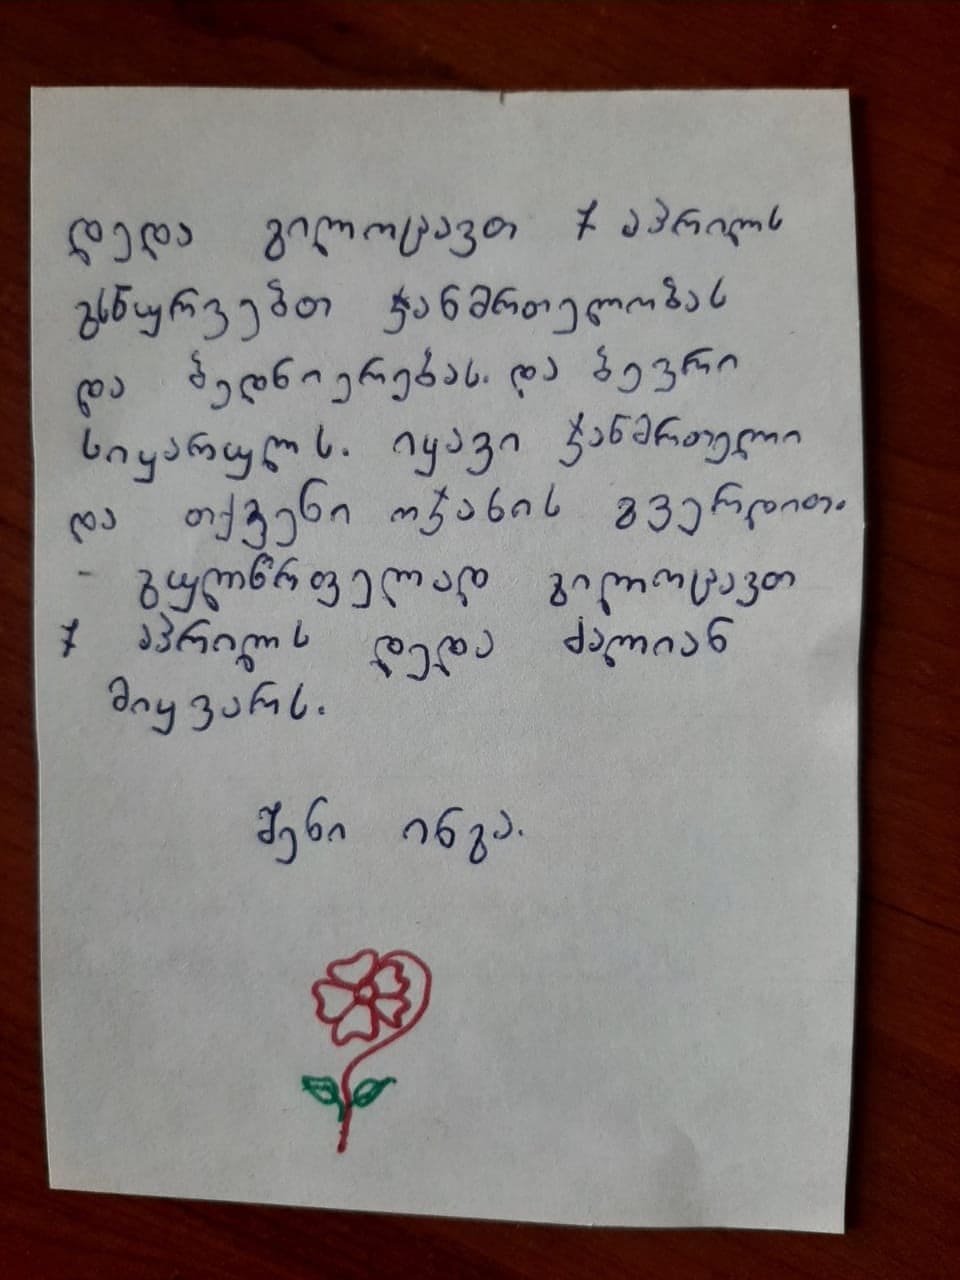 დედა გილოცავთ 7 აპრილს
გსნურვებთ ჯანმრთელობას
და ბედნიერებას. და ბევრი
სიყარულს. იყავი ჯანმრთელი
და თქვენი ოჯახის გვერდით.
- გულწრფელად გილოცავთ
7 აპრილს დედა ძალიან
მიყვარს.
შენი ინგა.